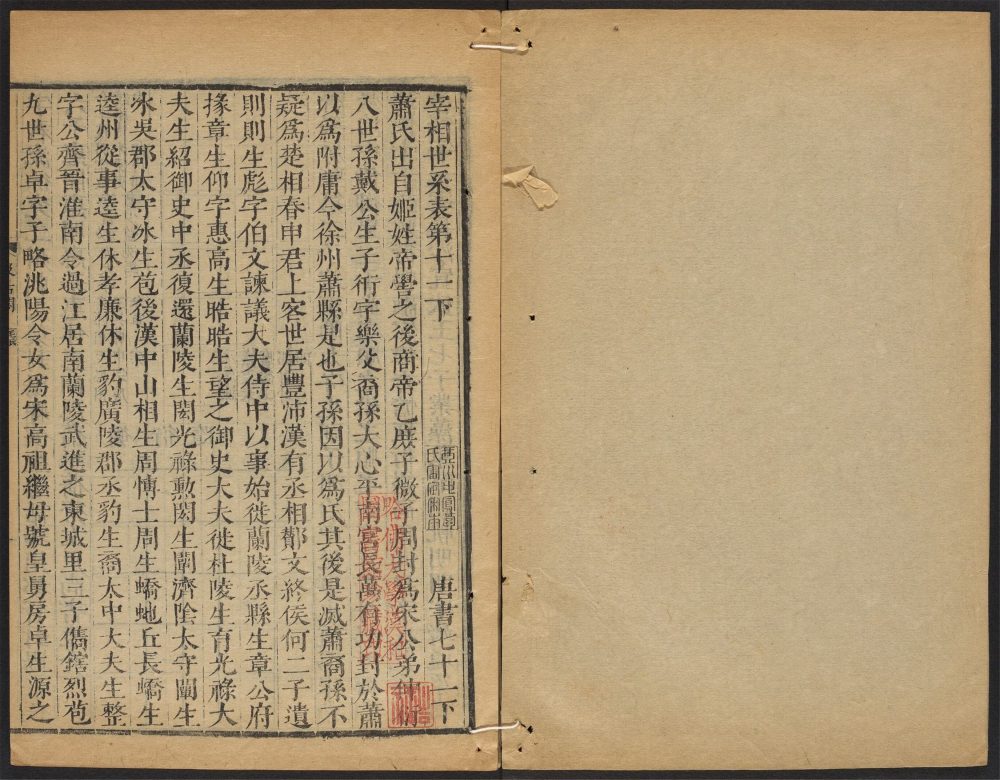 宰相世系表第十一下　唐書七十一下
蕭氏出自姬姓帝嚳之後商帝乙庶子微子周封爲宋公弟仲衍
八世孫戴公生子衎字樂父裔孫大心平南宮長萬有功封於蕭
以爲附庸今徐州蕭縣是也子孫因以爲氏其後是滅蕭裔孫不
疑爲楚相春申君上客世居豐沛漢有丞相酇文終侯何二子遺
則則生彪字伯文諫議大夫侍中以事始徙蘭陵丞縣生章公府
掾章生仰字惠高生晧晧生望之御史大夫徙杜陵生育光祿大
夫生紹御史中丞復還蘭陵生閎光祿勲閎生闡濟陰太守闡生
冰吳郡太守冰生苞後漢中山相生周愽士周生蟜虵丘長蟜生
逵州從事逵生休孝廉休生豹廣陵郡丞豹生裔太中大夫生整
字公齊晉淮南令過江居南蘭陵武進之東城里三子儁鎋烈苞
九世孫卓字子略洮陽令女爲宋高祖繼母號皇舅房卓生源之